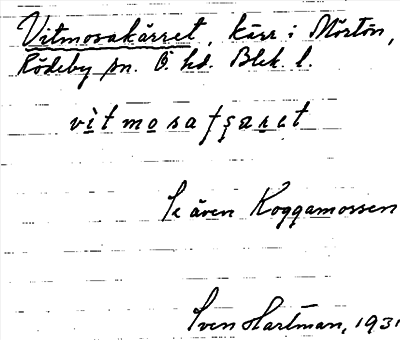 Vitmosakärret, kärr i Mörtön,
Rödeby sn. Ö. hd. Blek. l.
vitmosatʃaret
Se även Koggamossen
Sven Hartman, 1931